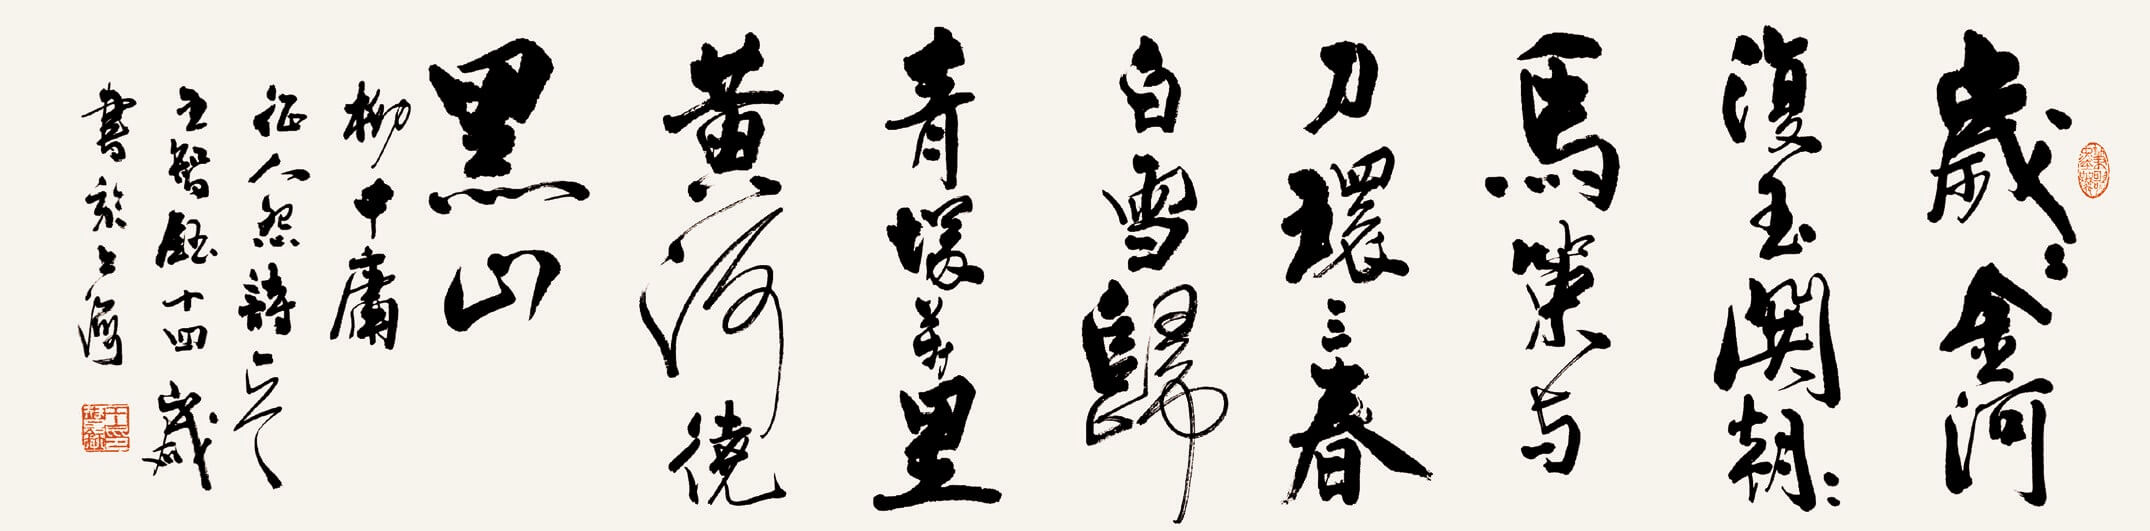 歲〻金河
復玉關朝〻
馬策与
刀環三春
白雪歸
青塚萬里
黃河繞
黑山
柳中庸
征人怨詩一首
王智鈺十四歲
書於上海